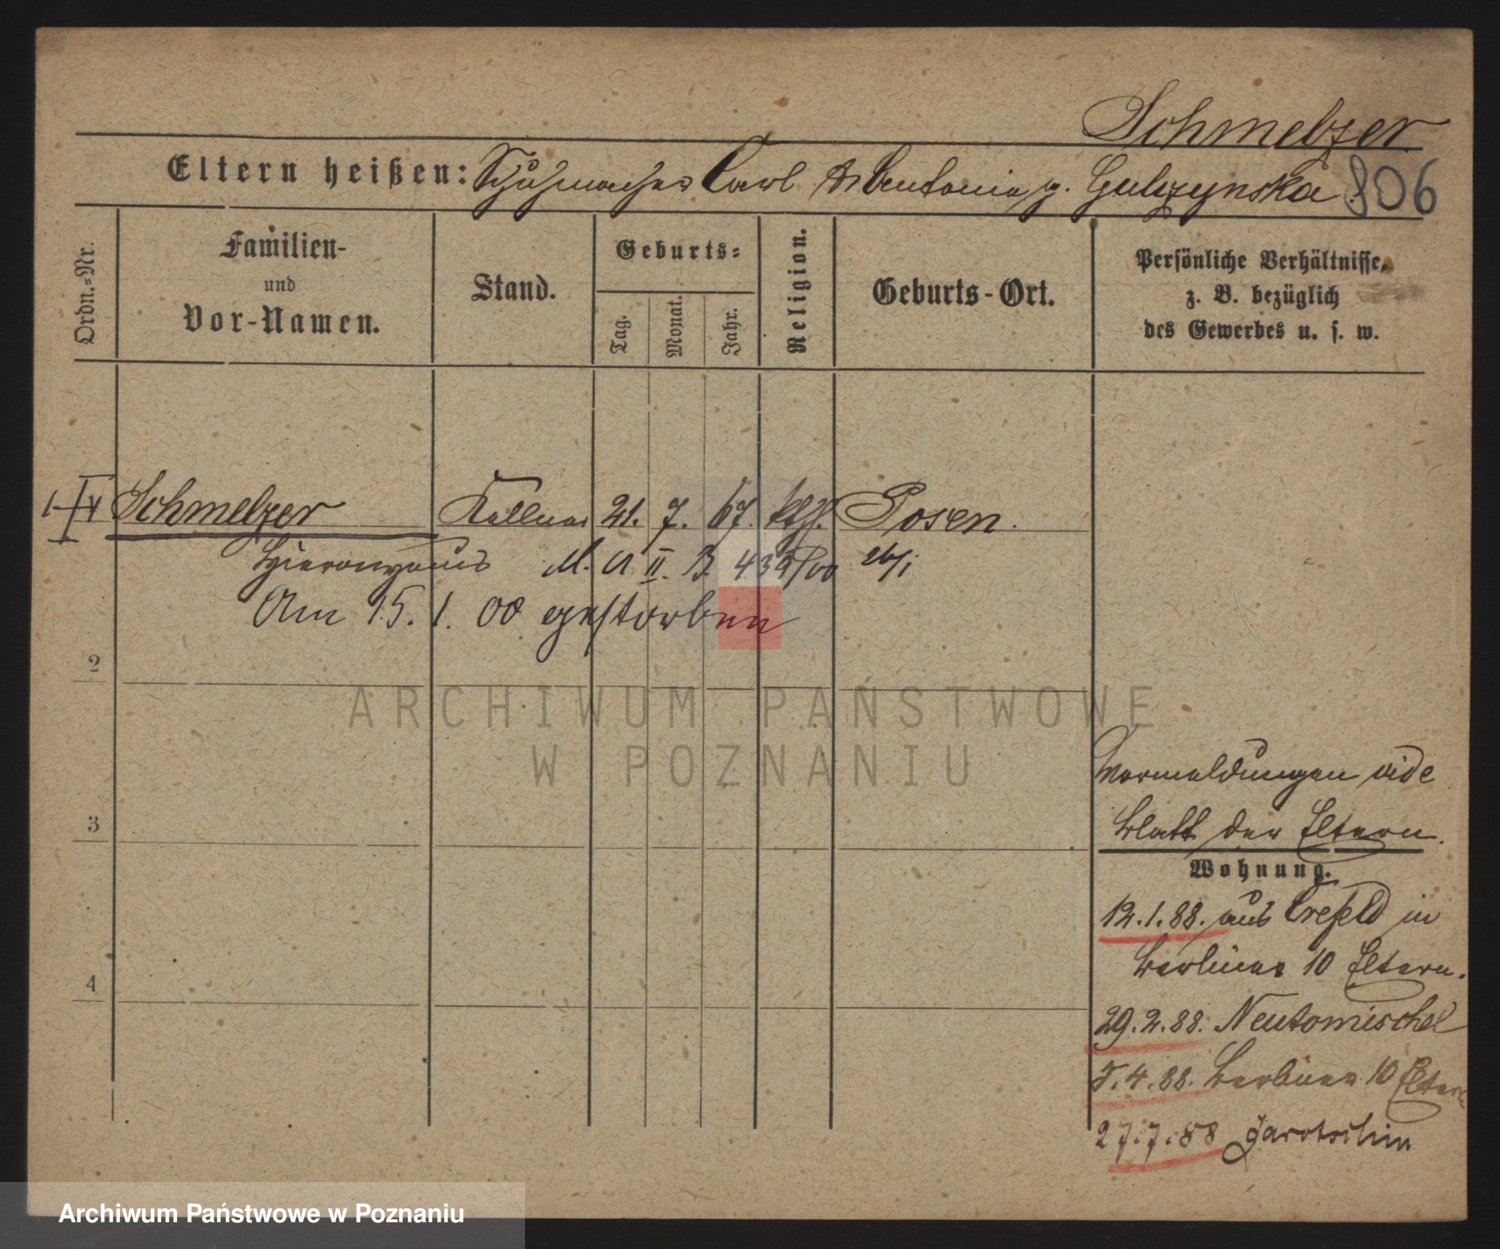 Schmelzer
Eltern heißen: Schuhmacher Carl u. Antonia g. Gulczynska
806
Ordn.-Nr.
Familien-
und
Vor-Namen.
Stand.
Geburts-
Tag.
Monat.
Jahr.
Religion.
Geburts-Ort.
Persönliche Verhältnisse,
z. B. bezüglich
des Gewerbes u. s. w.
Schmelzer Kellner 21. 7. 67. kth. Posen.
Hieronymus M. A II. B 439/00 26/1
Am 15. 1. 00 gestorben
2
3
4
ARCHIWUM PAŃSTWOWE
W POZNANIU
Vormeldungen vide
Blatt der Eltern.
Wohnung.
12.1.88. aus Crefeld in
Berliner 10 Eltern.
29.2.88. Neutomischel
5.4.88. Berliner 10 Eltern
27.7.88 Jarotschin
Archiwum Państwowe w Poznaniu